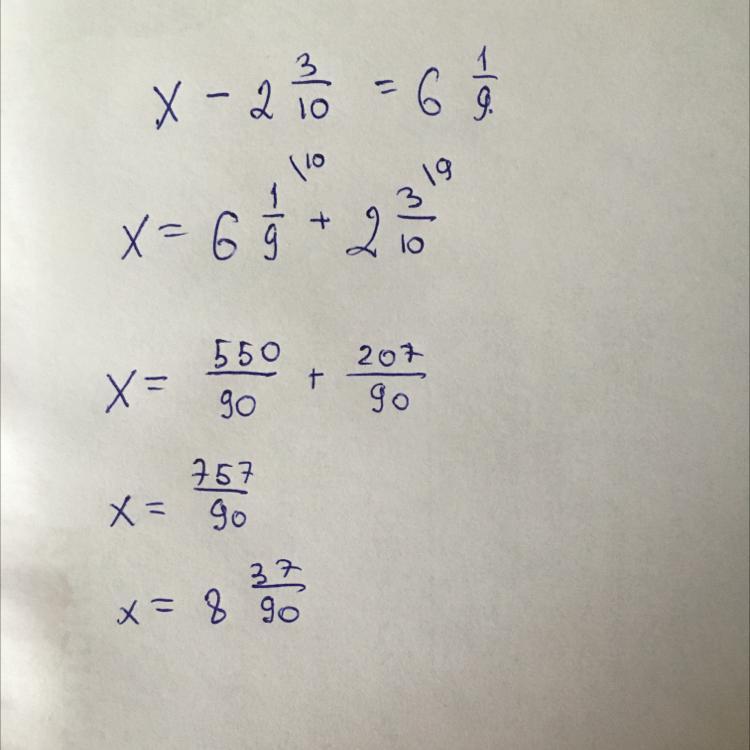 x - 2 3/10 = 6 1/9
x = 6 1/9 \10 + 2 3/10 \9
x = 550/90 + 207/90
x = 757/90
x = 8 37/90